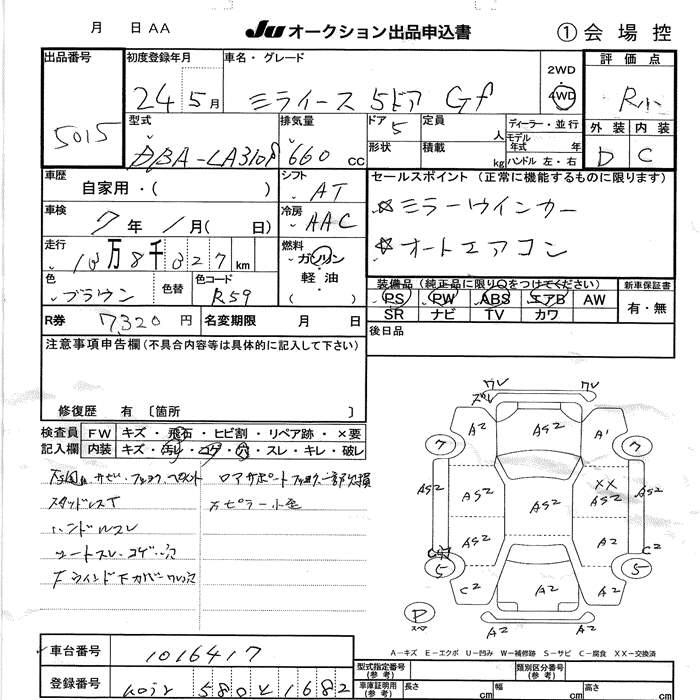 月 日 AA Ju オークション出品申込書 ① 会場控
出品番号 初度登録年月 車名・グレード 2WD 評価点
5015 24 5月 ミライース 5ドア Gf 4WD R小
型式 排気量 ドア 定員 ディーラー・並行 外装 内装
DBA-LA310F 660 CC 5 人 モデル年式 年 D C
形状 積載 kg ハンドル 左・右
車歴 シフト セールスポイント (正常に機能するものに限ります)
自家用・( ) AT ☆ミラーウインカー
車検 冷房
7年 1月( 日) AAC ☆オートエアコン
走行 燃料
10万8千327km ガソリン
色 色替 色コード 軽油 装備品(純正品に限り○をつけてください) 新車保証書
ブラウン R59 ( ) PS PW ABS エアB AW 有・無
SR ナビ TV カワ
R券 7,320円 名変期限 月 日 後日品
注意事項申告欄(不具合内容等は具体的に記入して下さい)
修復歴 有 〔箇所 〕
検査員 FW キズ・飛石・ヒビ割・リペア跡・×要
記入欄 内装 キズ・汚レ・コゲ・穴・スレ・キレ・破レ
スタッドレスT
ハンドルスレ
シートスレ・コゲ・穴
ズレ ワレ ワレ
A2 AS2 A1
7 7
AS2 AS2 XX AS2 AS2
AS2 AS2 A2
5 C2 5
C2 A2 A2
A2 A2
P スペア
A-キズ E-エクボ U-凹み W-補修跡 S-サビ C-腐食 XX-交換済
車台番号 1016417 型式指定番号(参考) 類別区分番号(参考)
登録番号 580 1682 車庫証明用(参考) 長さ cm 幅 cm 高さ cm